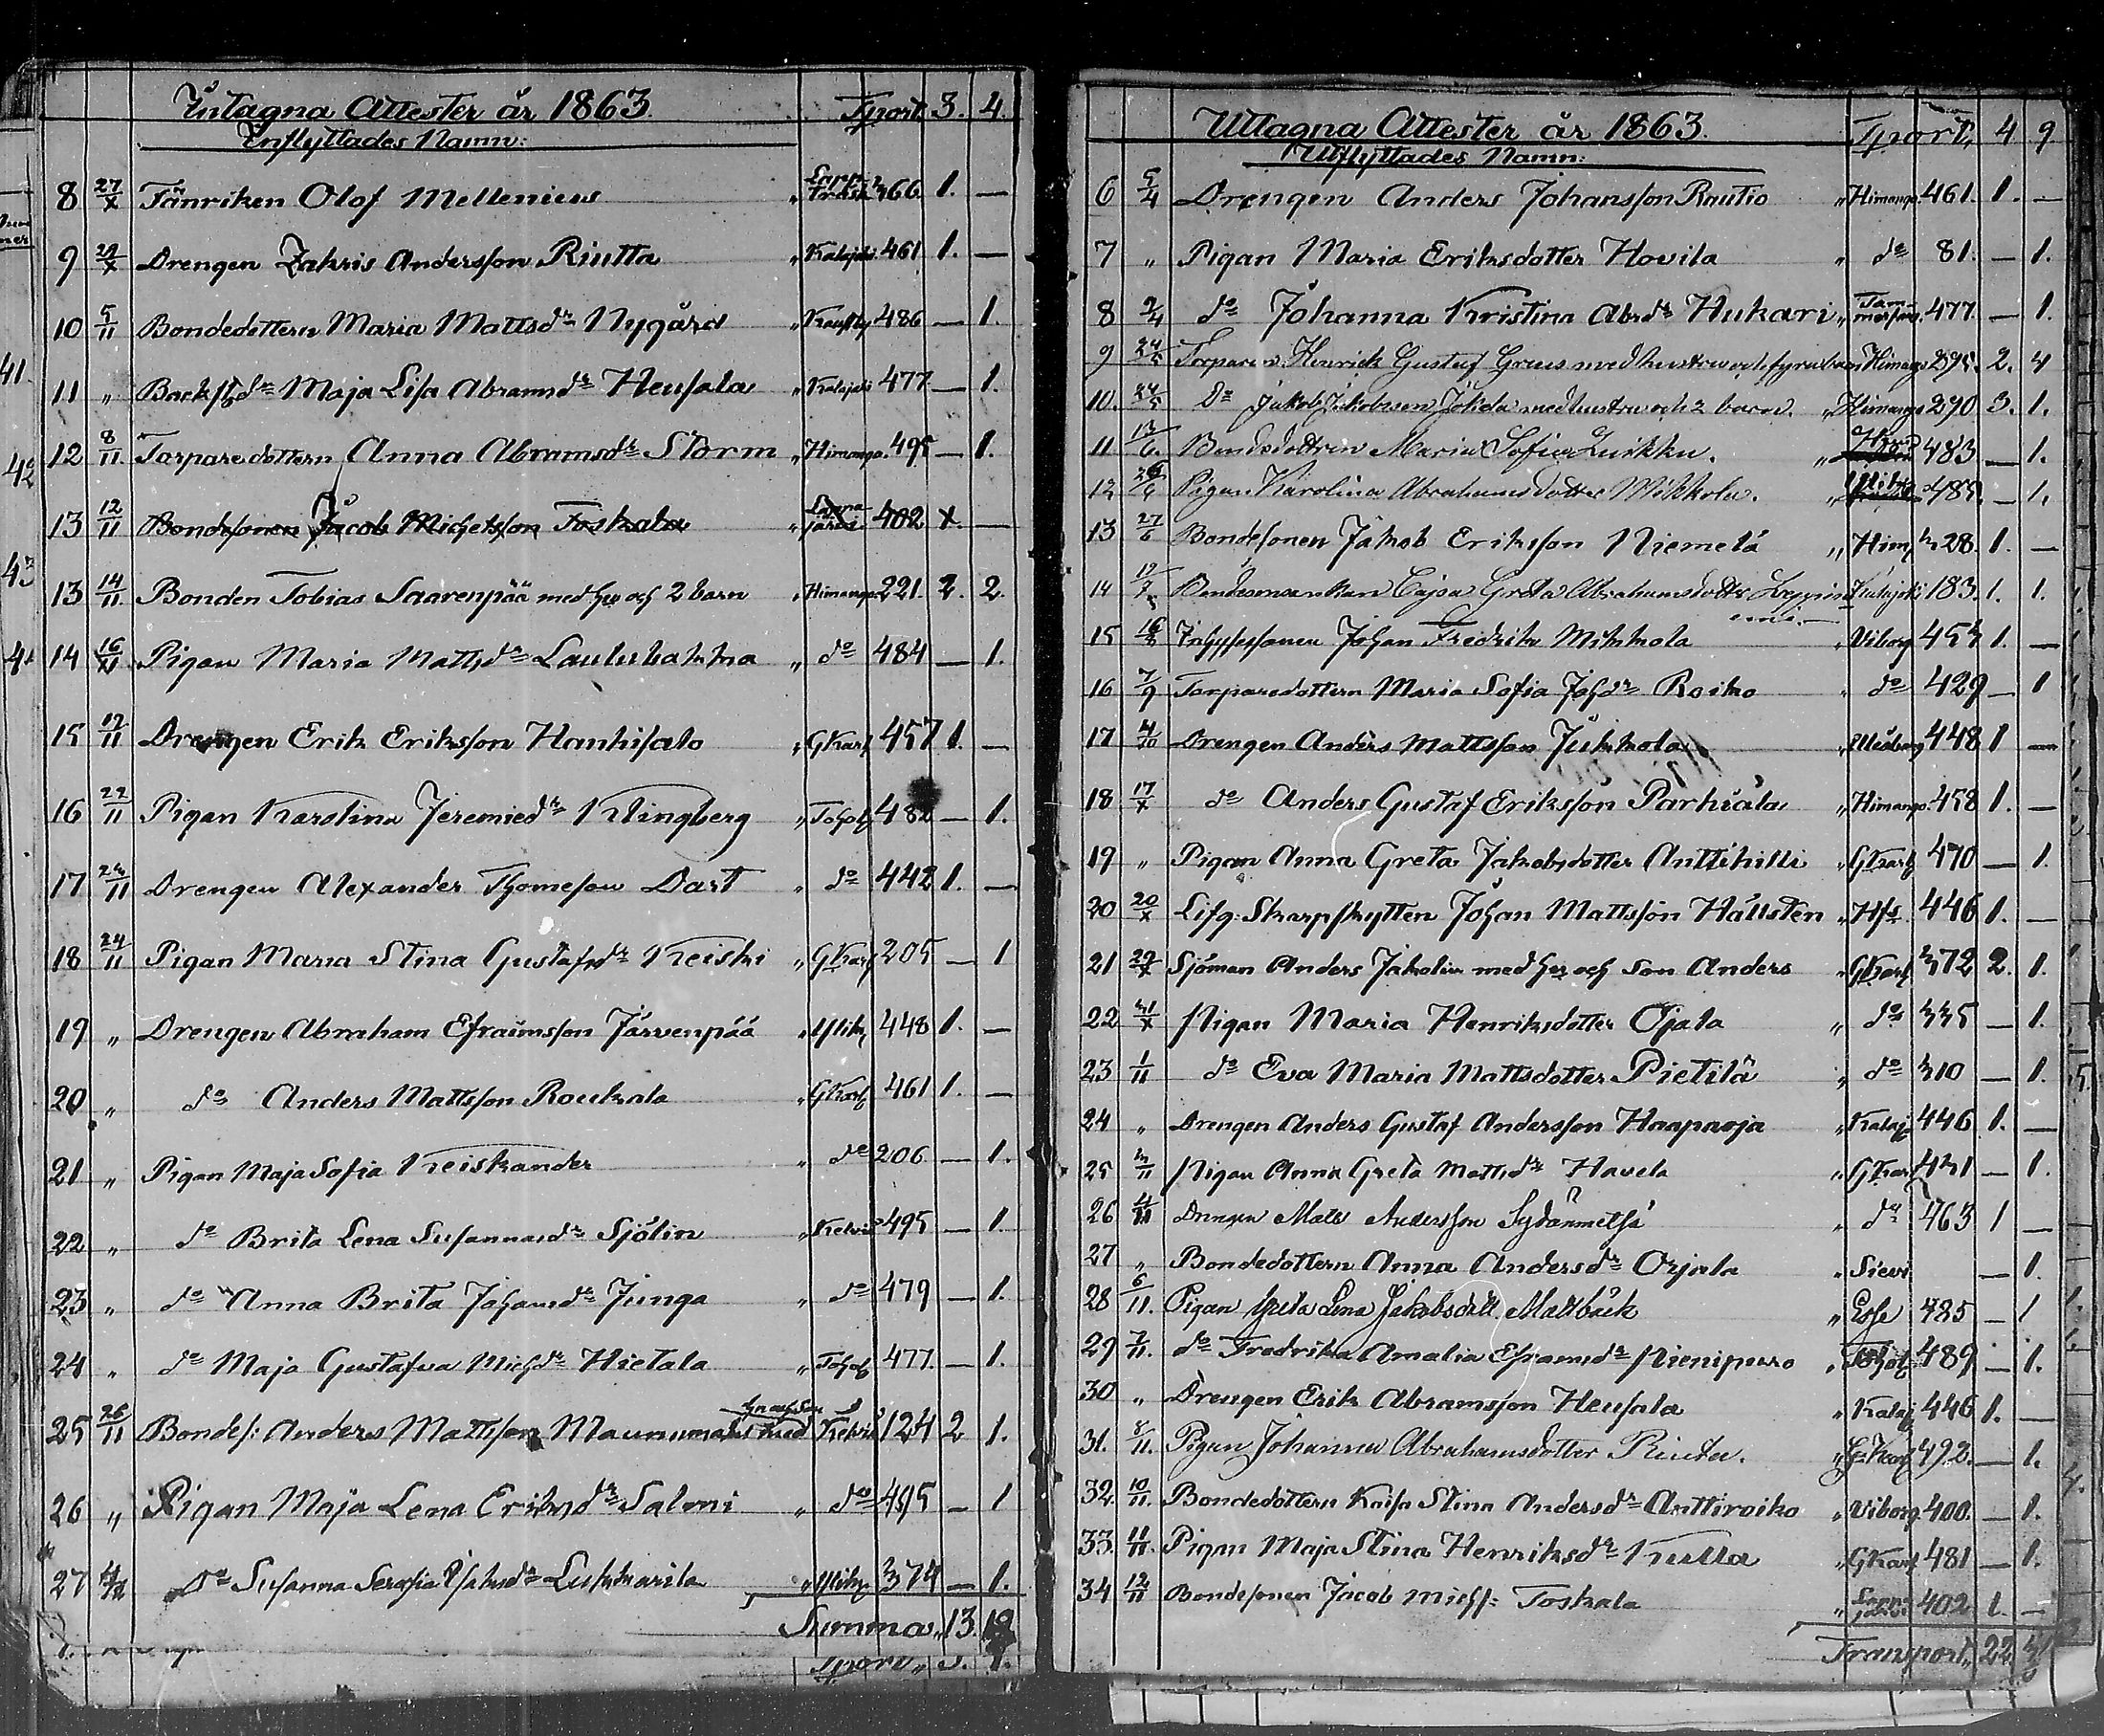 Intagna Attester år 1863. Tport. 3. 4.
Inflyttades Namn:
8 27/X Fänriken Olof Mellenius " 466 1. —
9 29/X Drengen Zakris Andersson Riutta " Kalajoki 461 1. —
10 5/11 Bondedottern Maria Mattsdr Nygård " Kaustby 486 — 1.
11 " Backstdr Maja Lisa Abramsdr Heusala " Kalajoki 477 — 1.
12 8/11. Torparedottern Anna Abramsdr Storm " Himango. 495 — 1.
13 12/11 Bondesonen Jacob Michelsson Toskala " Lappajärvi 402 —
13 14/11. Bonden Tobias Saarenpää med hu och 2 barn " Himango 221. 2. 2.
14 16/XI Pigan Maria Mattsdr Laulubakka " do 484 — 1.
15 17/11 Drengen Erik Eriksson Hankisalo " GKarl 457 1. —
16 22/11 Pigan Karolina Jeremiedr Klingberg " Toholg 482 — 1.
17 24/11 Drengen Alexander Thomeson Dart " do 442 1. —
18 24/11 Pigan Maria Stina Gustafsdr Keiski " GKarl 205 — 1
19 " Drengen Abraham Efraimsson Järvenpää " Ylik 448 1. —
20 " do Anders Mattsson Roukala " GKarl 461 1. —
21 " Pigan Maja Sofia Keiskander " do 206 — 1.
22 " do Brita Lena Susannasdr Sjölin " Kelviå 495 — 1.
23 " do Anna Brita Johansdr Junga " do 479 — 1.
24 " do Maja Gustafva Michdr Hietala " Toholg 477. — 1.
25 26/11 Bondes: Anders Mattsson Maunumaki med hu och son Kelviå 124 2 1.
26 " Pigan Maja Lena Eriksdr Salmi " do 495 — 1
27 Do Susanna Serafia Isaksdr Lukkarila " Ylik 374 — 1.
Summa " 13.
Tport "
Uttagna Attester år 1863. Tport. 4 9.
Utflyttades Namn:
6 5/4 Drengen Anders Johansson Rautio " Himango. 461. 1. —
7 " Pigan Maria Eriksdotter Hovila " do 81. — 1.
8 9/4 do Johanna Kristina Abrdr Hukari " Tammerfors. 477. — 1.
9 24/5 Torparen Henrick Gustaf Greus med hustru och fyra barn Himango 295. 2. 4
10. 24/5 Do Jakob Jakobsson Jokela med hustru och 2 barn. " Himango 290 3. 1.
11 13/6. Bondedottren Maria Sofia Luikku. " 483 — 1.
12 26/6 Pigan Karolina Abrahamsdotter Mikkola. " 485. — 1.
13 27/6 Bondesonen Jakob Eriksson Niemelä " Him 328. 1. —
14 12/7 Bondesonsenkan Cajsa Greta Abrahamsdotter Leppiniemi. Kalajoki 183. 1. 1.
15 16/8 Inhyssessonen Johan Fredrik Mikkola " Viborg 453 1. —
16 7/9 Torparedottern Maria Sofia Johdr Roiko " do 429 — 1
17 4/10 Drengen Anders Mattsson Jukkola " Uleåborg 448 1 —
18 17/X do Anders Gustaf Eriksson Parkiala " Himango 458 1. —
19 " Pigan Anna Greta Jakobsdotter Anttihilli " GKarl 470 — 1.
20 20/X Lifg: Skarpskytten Johan Mattsson Hällsten " Hfs. 446 1. —
21 29/X Sjöman Anders Jakolin med hu och son Anders " GKarl 372 2. 1.
22 31/X Pigan Maria Henriksdotter Ojala " do 335 — 1.
23 1/11 do Eva Maria Mattsdotter Pietilä " do 310 — 1.
24 " Drengen Anders Gustaf Andersson Haapaoja " Kalaj 446 1. —
25 3/11 Pigan Anna Greta Mattsdr Havela " GKar 431 — 1.
26 4/11 Drengen Matts Andersson Sydänmetsä " do 463 1 —
27 " Bondedottern Anna Andersdr Orjala " Sievi — 1.
28 6/11. Pigan Greta Lena Jakobsdott. Mattbäck " Esse 485 — 1
29 7/11. do Fredrika Amalia Eframsdr Pienipuro " Toholg 489 — 1.
30 " Drengen Erik Abramsson Heusala " Kalaj 446 1. —
31. 8/11. Pigan Johanna Abrahamsdotter Riutta. " G:Karl 492. — 1.
32. 10/11. Bondedottern Kaisa Stina Andersdr Anttiroiko " Viborg. 400. — 1.
33. 11/11. Pigan Maja Stina Henriksdr Kulla " GKarl 481 — 1.
34 12/11 Bondesonen Jacob Michs: Toskala " Lappajärvi 402 1. —
Transport " 22